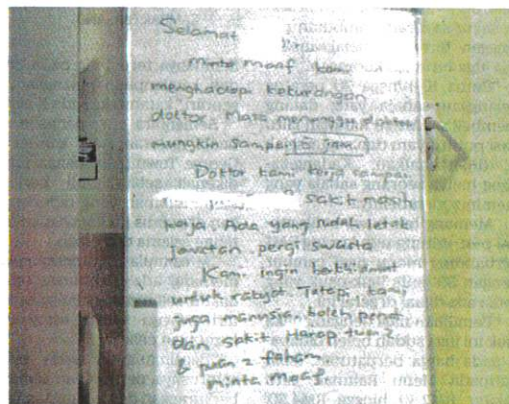 Selamat
Minta maaf kami
menghadapi kekurangan
doktor. Masa menunggu doktor
mungkin sampai jam.
Doktor kami kerja sampai
sakit masih
kerja. Ada yang sudah letak
jawatan pergi swasta
Kami ingin berkhidmat
untuk rakyat. Tetapi kami
juga manusia boleh penat
dan sakit. Harap tuan2
& puan2 faham
minta maaf